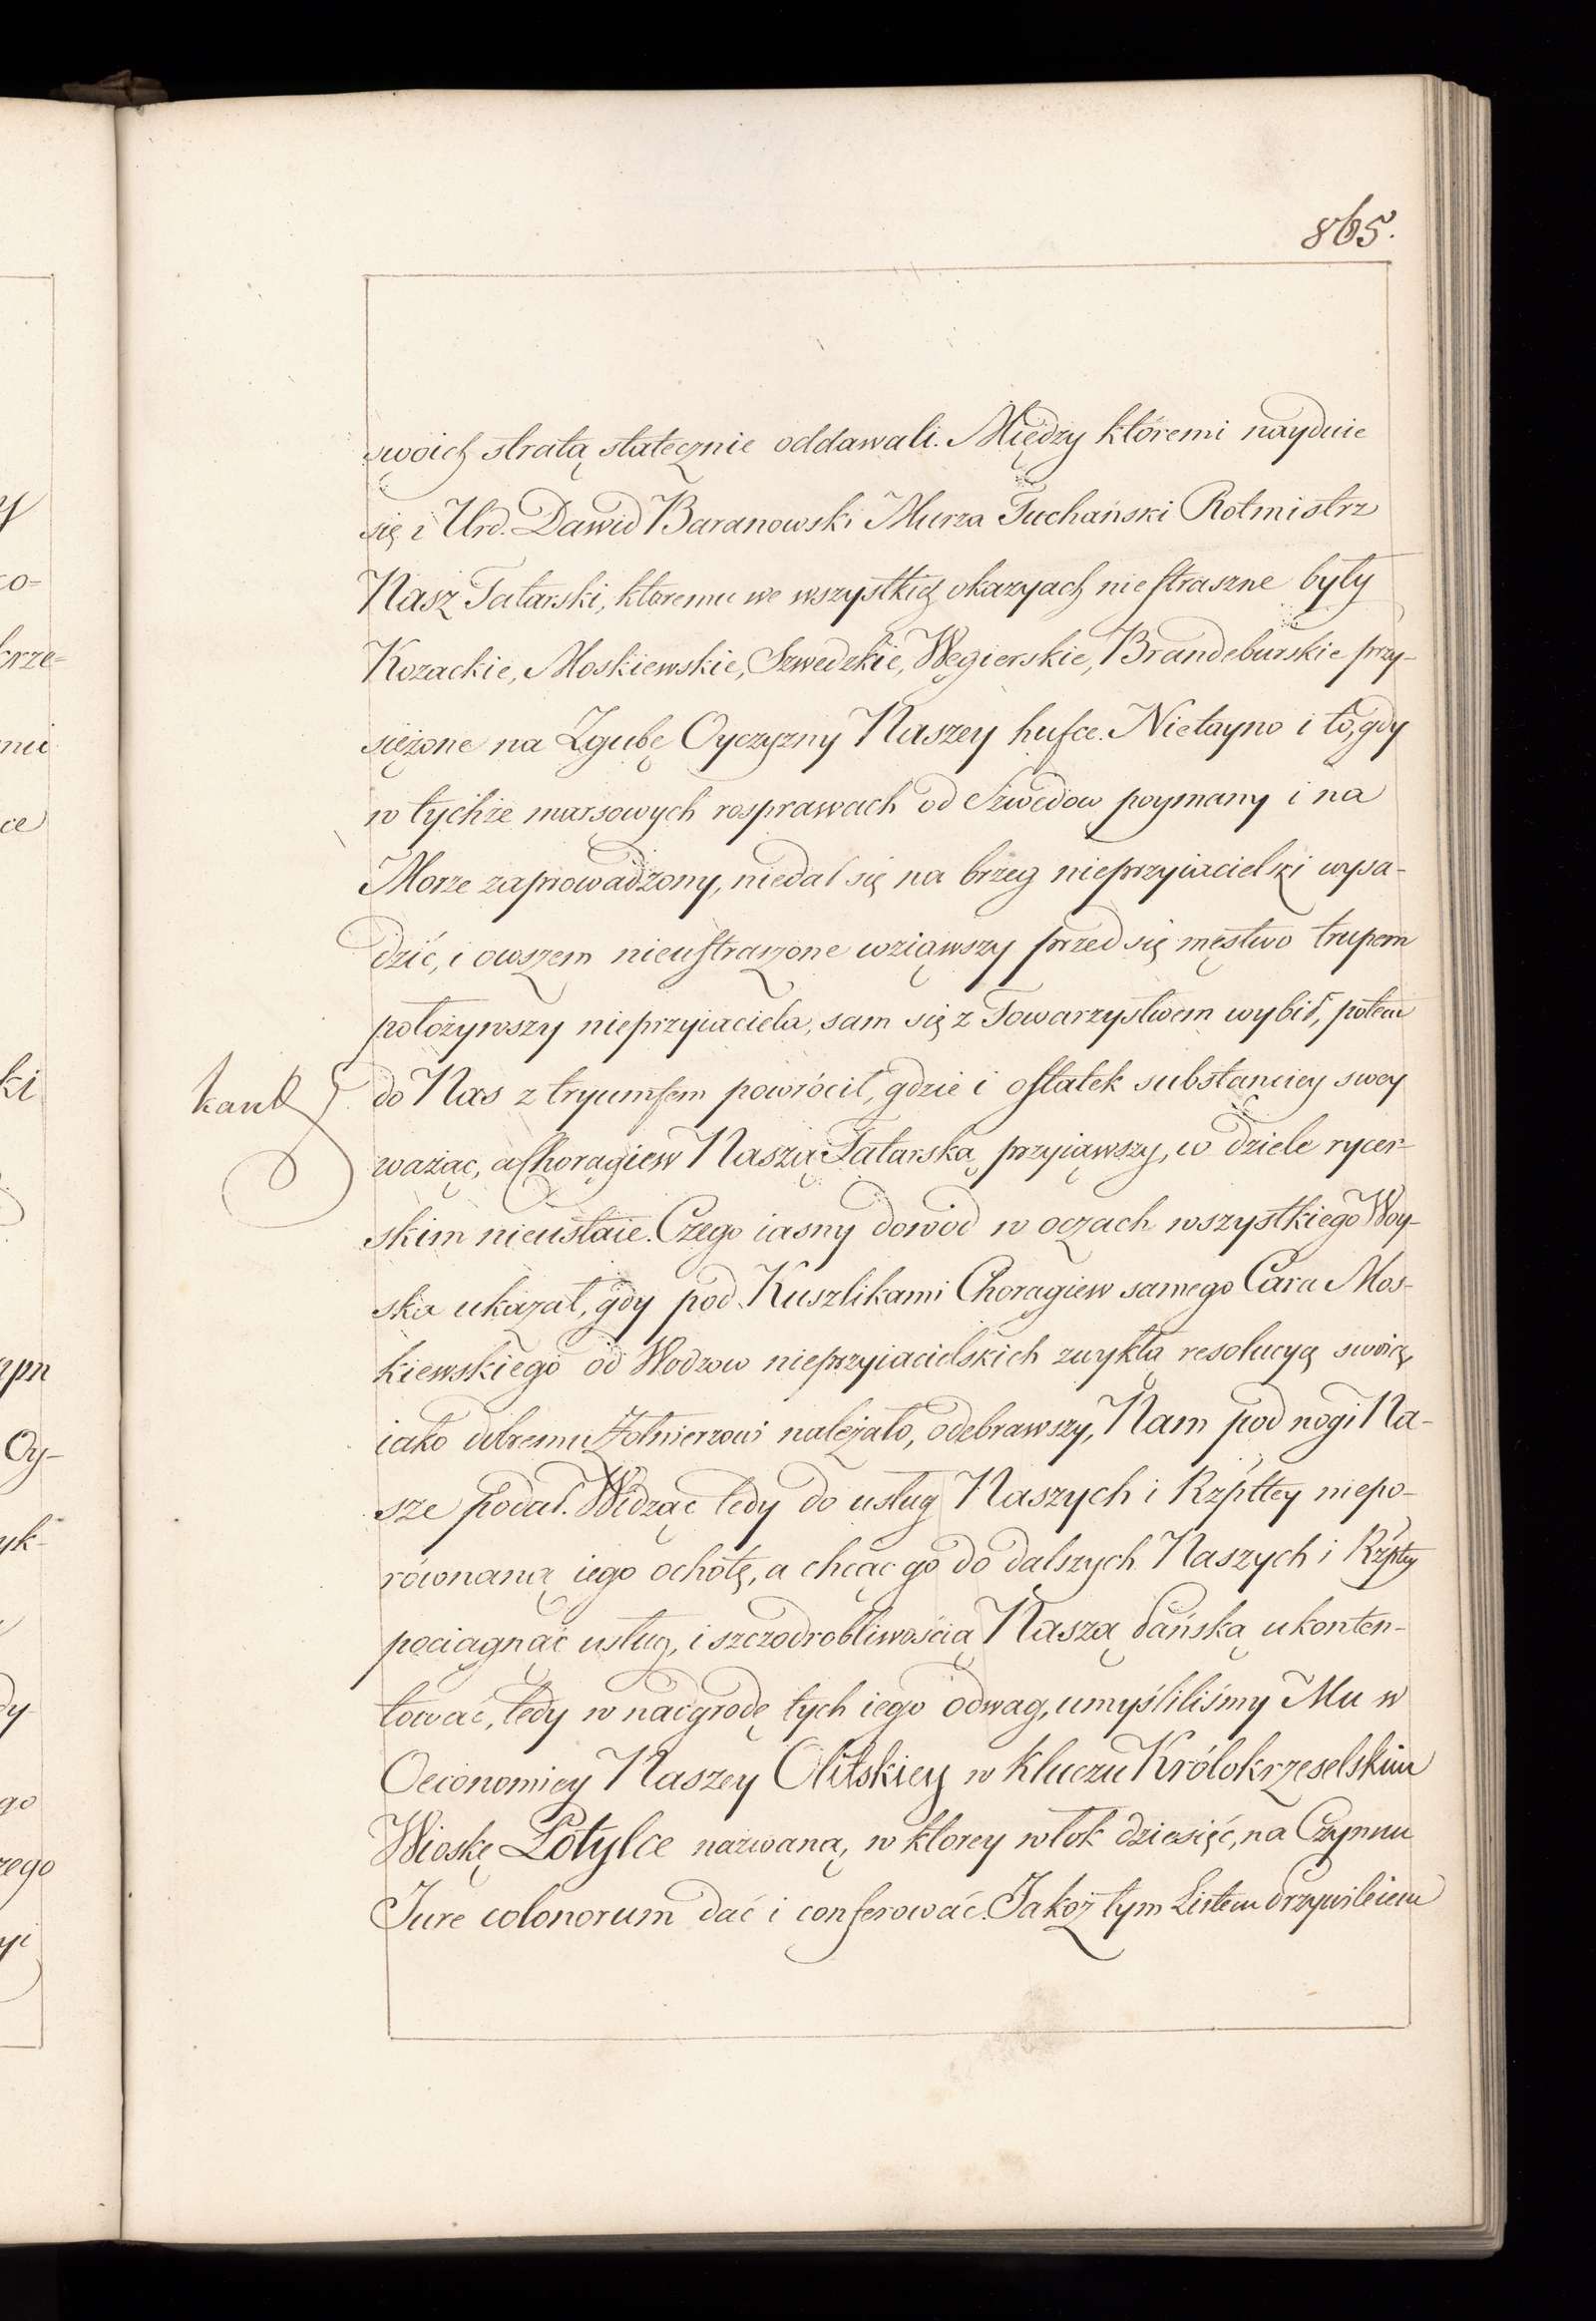 865.
swoich stratą statecznie oddawali. Między któremi nayduie
się i Urd. Dawid Baranowski Murza Juchański Rotmistrz
Nasz Tatarski, ktoremu we wszystkich okazyach niestraszne były
Kozackie, Moskiewskie, Szwedzkie, Węgierskie, Brandeburskie przy-
siężone na Zgubę Oyczyzny Naszey hufce. Nietayno i to, gdy
w tychże marsowych rosprawach od Szwedow poymany i na
Morze zaprowadzony, niedał się na brzeg nieprzyiacielski wysa-
dzić, i owszem nieustraszone wziąwszy przed się męstwo trupem
położywszy nieprzyiaciela, sam się z Towarzystwem wybił, potem
do Nas z tryumfem powrócił, gdzie i ostatek substanciey swey
ważąc, a Chorągiew Naszą Tatarską przyiąwszy, w dziele rycer-
skim nieustaie. Czego iasny dowód w oczach wszystkiego Woy-
ska ukazał, gdy pod Kuszlikami Chorągiew samego Cara Mos-
kiewskiego od Wodzow nieprzyiacielskich zwykłą resolucyą swoią,
iako dobremu Żołnierzowi należało, odebrawszy, Nam pod nogi Na-
sze podał. Widząc tedy do usług Naszych i Rzpltey niepo-
równaną iego ochotę, a chcąc go do dalszych Naszych i Rzpltey
pociągnąć usług, i szczodrobliwością Naszą Pańską ukonten-
tować, tedy w nadgrodę tych iego odwag, umyśliliśmy Mu w
Oeconomiey Naszey Olitskiey w Kluczu Królokrzeselskim
Wioskę Potylce nazwaną, w ktorey włok dziesięć, na Czynszu
Jure colonorum dać i conferować. Jakoż tym Listem Przywileiem